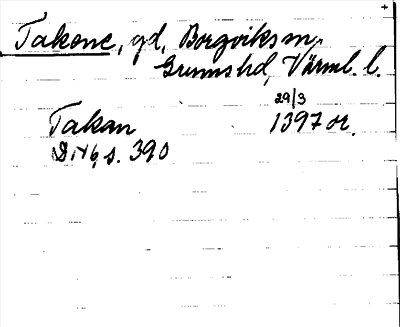 Takene, gd, Borgviks sn,
Grums hd, Värml. l.
Takan 29/3 1397 or.
s. 390